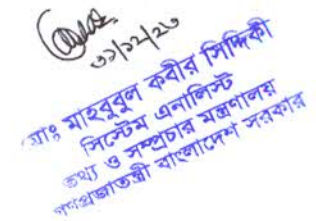 ৩১/১২/২৩
মোঃ মাহবুবুল কবীর সিদ্দিকী
সিস্টেম এনালিস্ট
তথ্য ও সম্প্রচার মন্ত্রণালয়
গণপ্রজাতন্ত্রী বাংলাদেশ সরকার